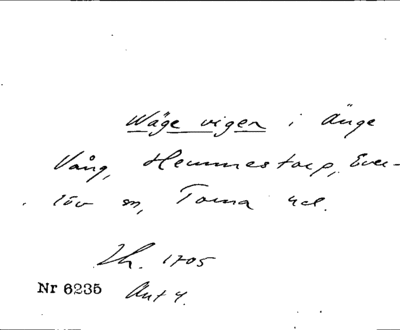 Wäge vigen i Änge
Vång, Hemmestorp, Ever-
löv sn, Torna hd.
Lh. 1705
Nr 6235 Ant 4.